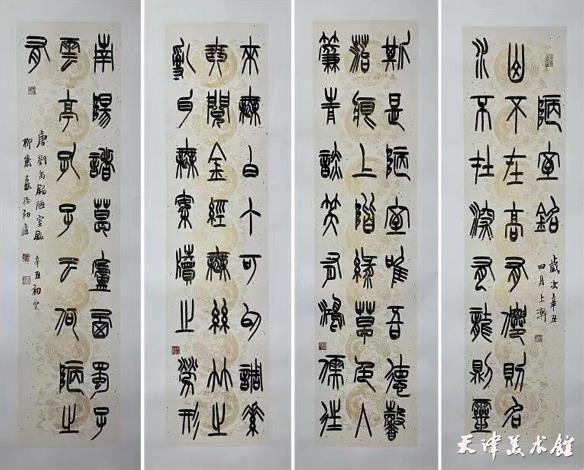 陋室銘
歲次辛丑
四月上澣
山不在高有僊則名
水不在深有龍則靈
斯是陋室唯吾德馨
苔痕上階綠草色入
簾青談笑有鴻儒往
來無白丁可以調素
琴閱金經無絲竹之
亂耳無案牘之勞形
南陽諸葛廬西蜀子
雲亭孔子云何陋之
有
唐劉禹錫陋室銘 辛丑初夏
天津美术馆